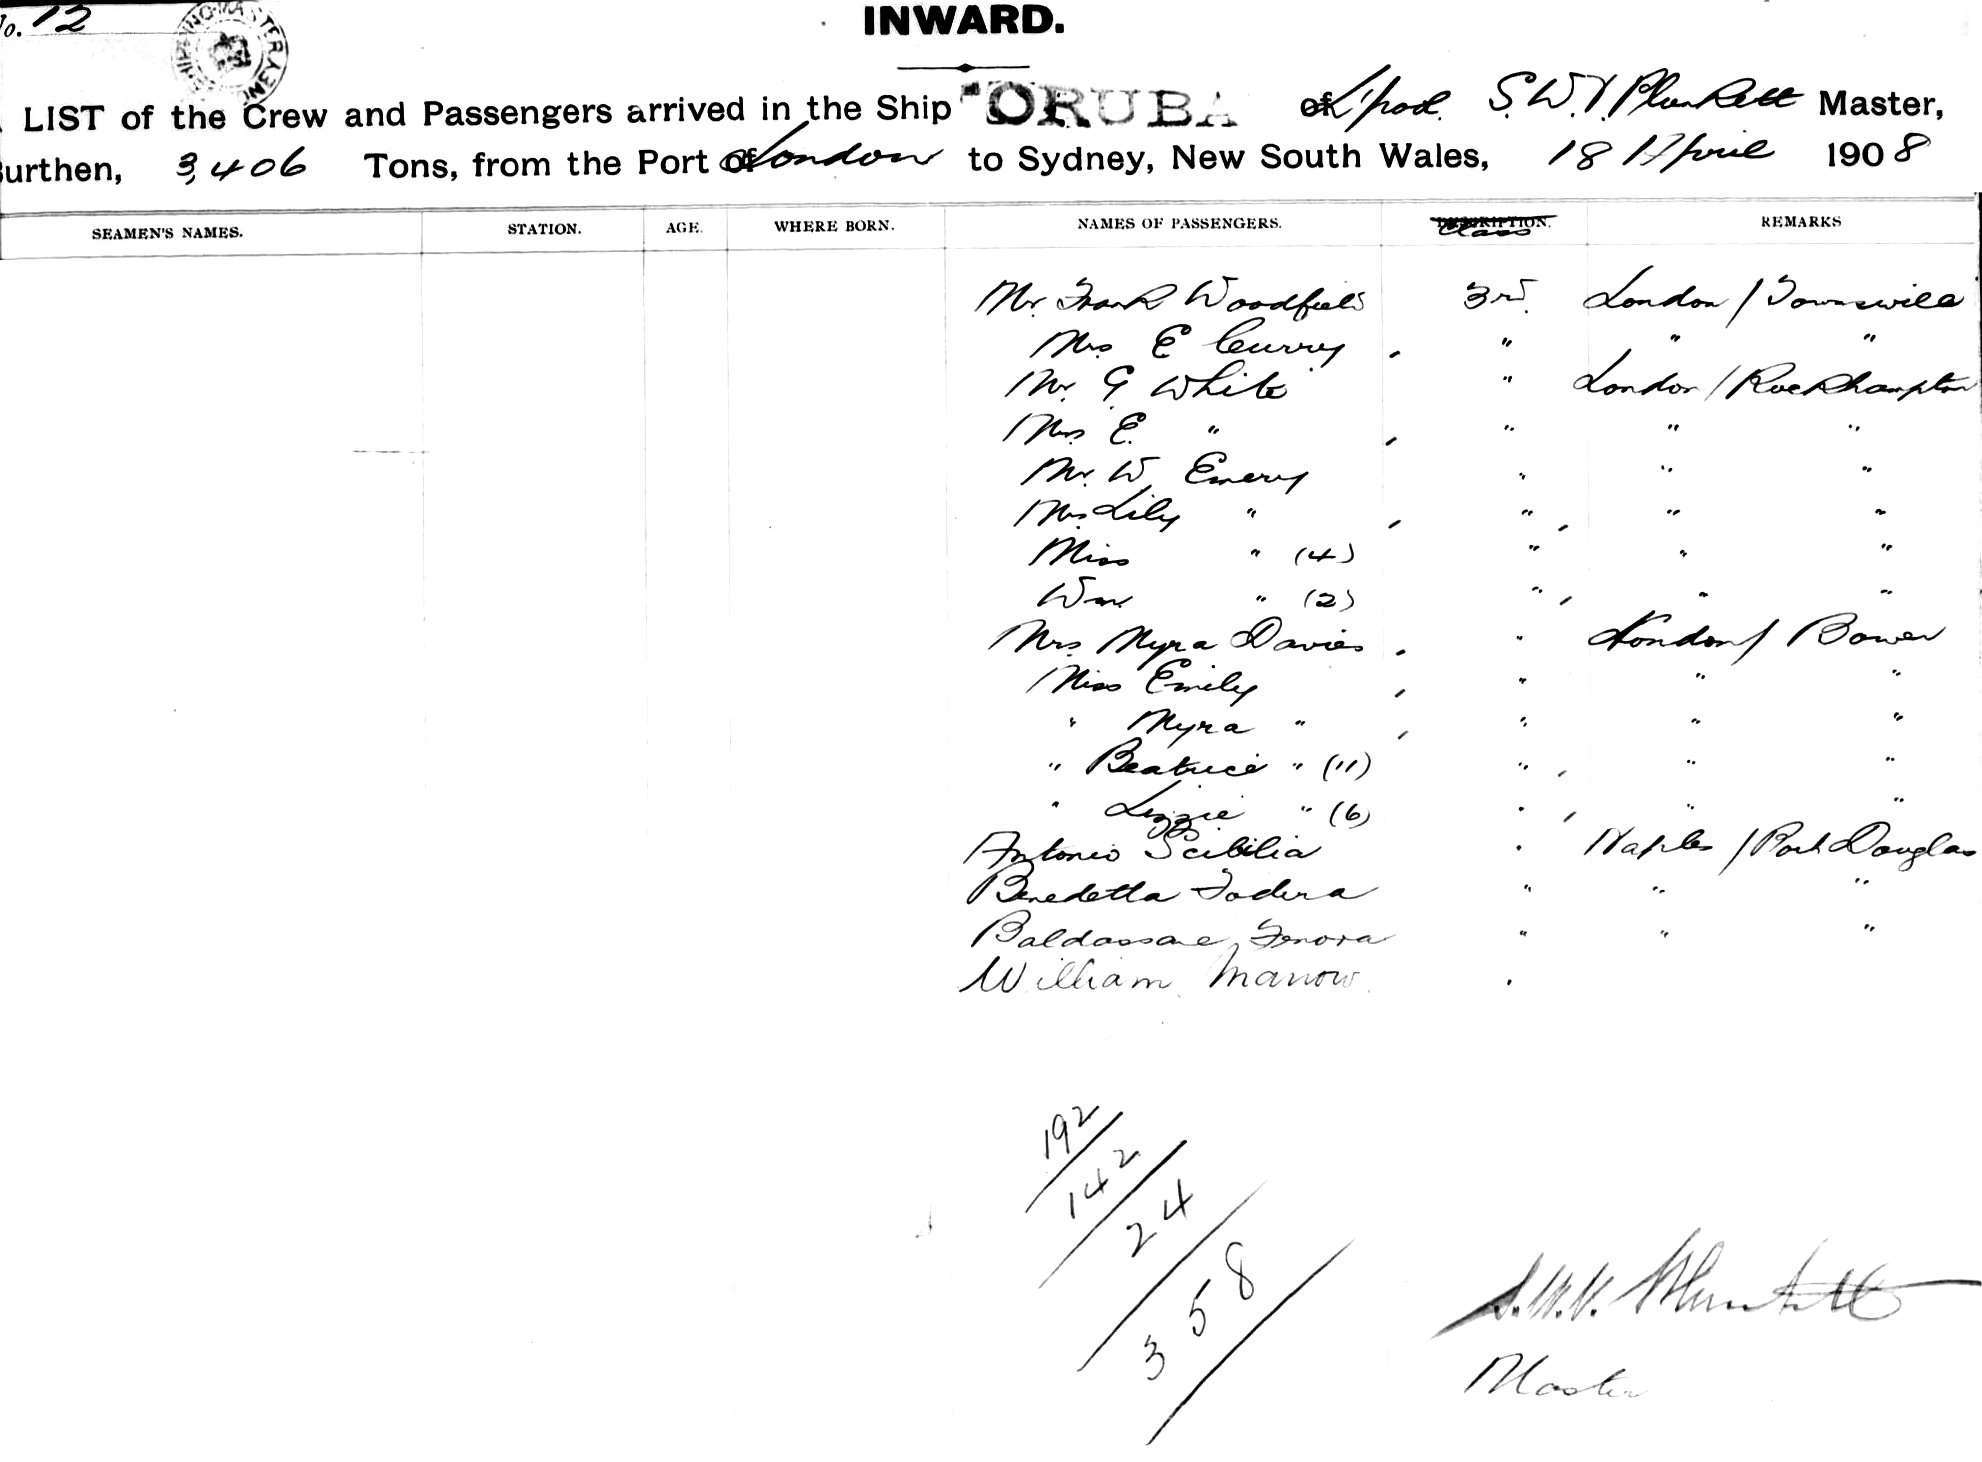 No. 12
SHIPPING MASTER SYDNEY
INWARD.
LIST of the Crew and Passengers arrived in the Ship "ORUBA of L'pool. S.W.V. Plunkett Master,
Burthen, 3,406 Tons, from the Port of London to Sydney, New South Wales, 18 April 1908
SEAMEN'S NAMES. STATION. AGE. WHERE BORN. NAMES OF PASSENGERS. DESCRIPTION. Class REMARKS
Mr. Frank Woodfield 3rd. London / Townsville
Mrs E Curry " " "
Mr. G. White " London / Rockhampton
Mrs. E. " " " "
Mr. W Emery " " "
Mrs Lily " " " "
Miss " (4) " " "
Wm. " (2) " " "
Mrs Myra Davies " London / Bowen
Miss Emily " " "
" Myra " " " "
" Beatrice " (11) " " "
" Lizzie " (6) " " "
Antonio Scibilia " Naples / Port Douglas
Benedetta Fodera " " "
Baldassare " " "
William Marrow "
192
142
24
358
S.W.V. Plunkett
Master